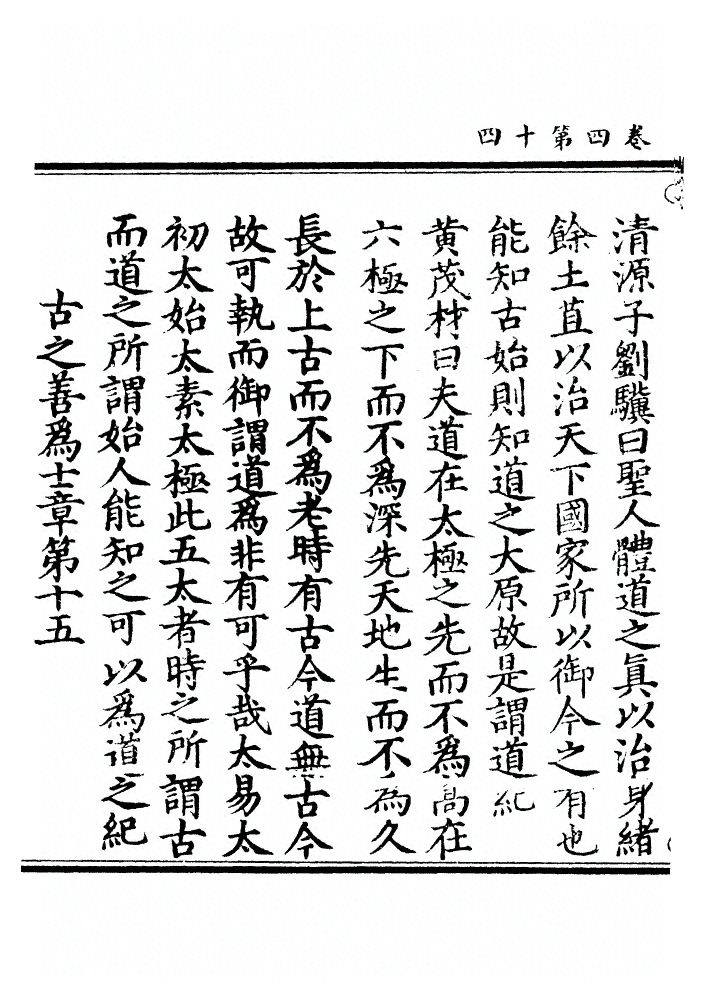 卷四第十四
清源子劉驥曰聖人體道之眞以治身緒
餘土苴以治天下國家所以御今之有也
能知古始則知道之大原故是謂道紀
黄茂材曰夫道在太極之先而不爲高在
六極之下而不爲深先天地生而不爲久
長於上古而不爲老時有古今道無古今
故可執而御謂道爲非有可乎哉太易太
初太始太素太極此五太者時之所謂古
而道之所謂始人能知之可以爲道之紀
古之善爲士章第十五